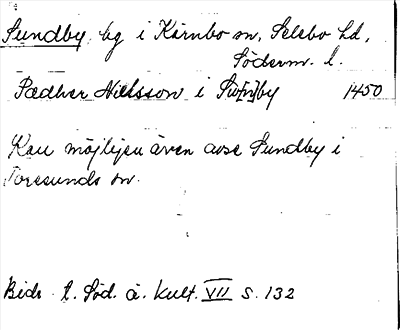 Sundby, by i Kärnbo sn, Selebo hd,
Söderm. l.
Pædher Nielsson i Su[n]by 1450
Kan möjligen även avse Sundby i
Toresunds sn.
Bidr t. Söd. ä. kult. VII s. 132